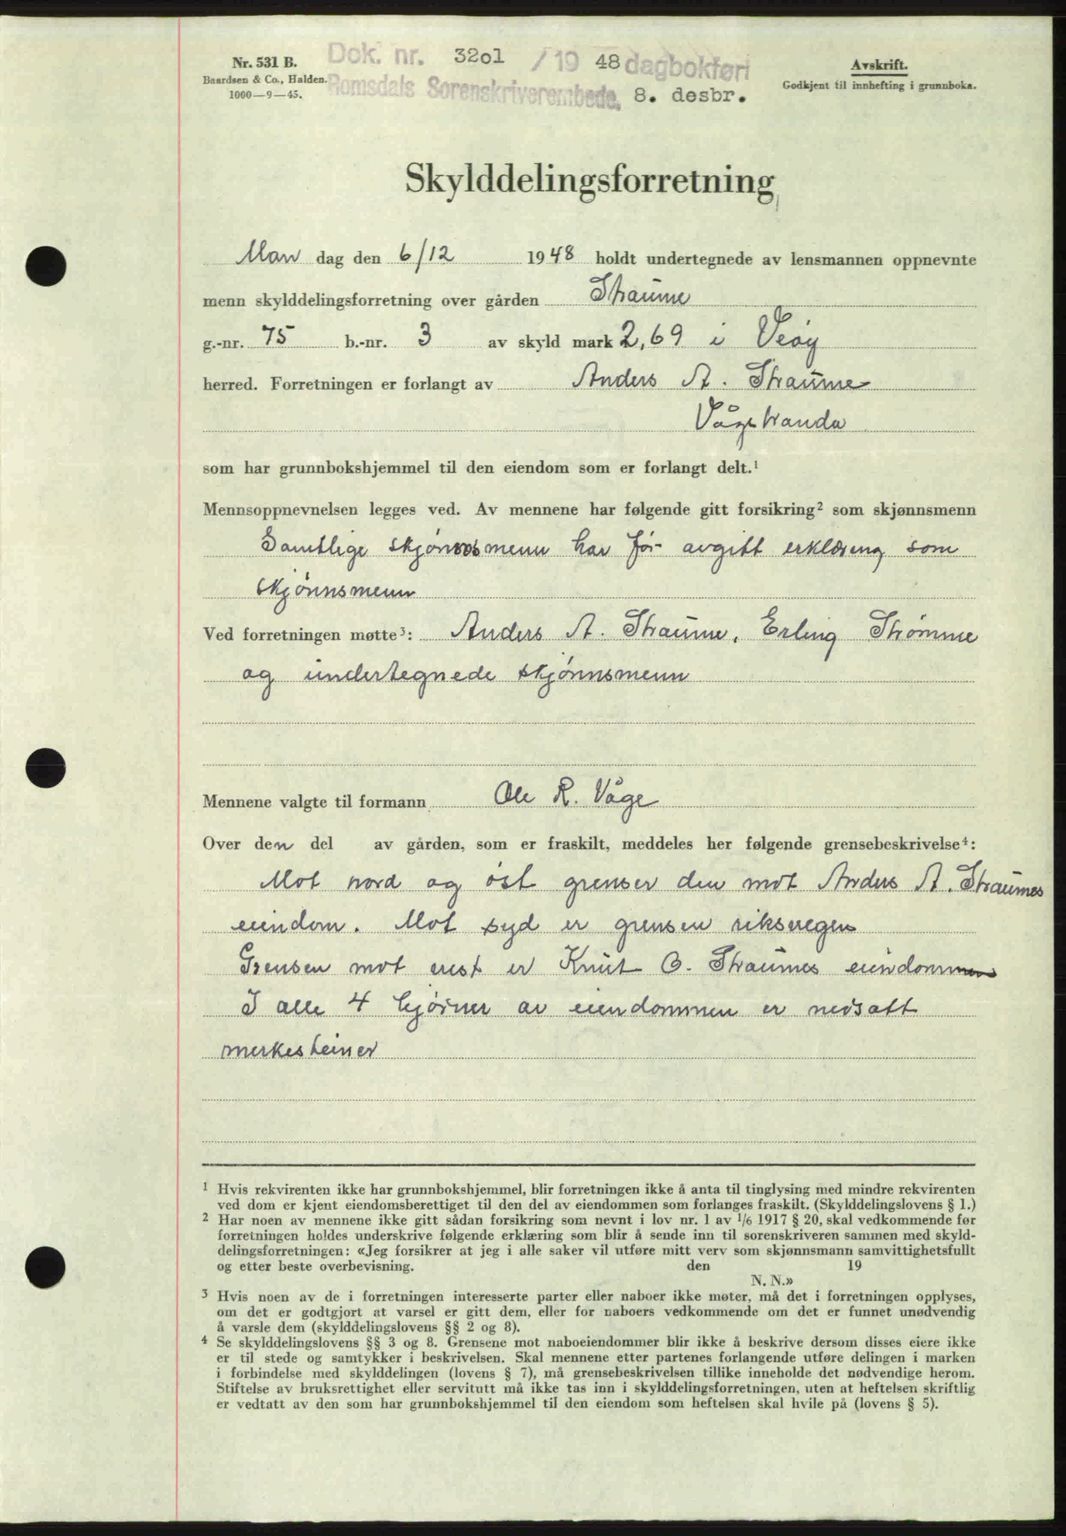 Nr. 531 B.
Baardsen & Co., Halden.
1000—9—45.
Dok. nr. 32o1 /19 48 dagbokført
Romsdals Sorenskriverembede, 8. desbr.
Avskrift.
Godkjent til innhefting i grunnboka.
Skylddelingsforretning
Man dag den 6/12 1948 holdt undertegnede av lensmannen oppnevnte
menn skylddelingsforretning over gården Straume
g.-nr. 75 b.-nr. 3 av skyld mark 2,69 i Veøy
herred. Forretningen er forlangt av Anders A. Straume
Vågstranda
som har grunnbokshjemmel til den eiendom som er forlangt delt.¹
Mennsoppnevnelsen legges ved. Av mennene har følgende gitt forsikring² som skjønnsmenn
Samtlige skjønnsmenn har før avgitt erklæring som
skjønnsmenn
Ved forretningen møtte³: Anders A. Straume, Erling Strømme
og undertegnede skjønnsmenn
Mennene valgte til formann Ole R. Våge
Over den del av gården, som er fraskilt, meddeles her følgende grensebeskrivelse⁴:
Mot nord og øst grenser den mot Anders A. Straumes
eiendom. Mot syd er grensen riksvegen
Grensen mot vest er Knut O. Straumes eiendom
I alle 4 hjørner av eiendommen er nedsatt
merkesteiner
¹ Hvis rekvirenten ikke har grunnbokshjemmel, blir forretningen ikke å anta til tinglysing med mindre rekvirenten
ved dom er kjent eiendomsberettiget til den del av eiendommen som forlanges fraskilt. (Skylddelingslovens § 1.)
² Har noen av mennene ikke gitt sådan forsikring som nevnt i lov nr. 1 av 1/6 1917 § 20, skal vedkommende før
forretningen holdes underskrive følgende erklæring som blir å sende inn til sorenskriveren sammen med skyld-
delingsforretningen: «Jeg forsikrer at jeg i alle saker vil utføre mitt verv som skjønnsmann samvittighetsfullt
og etter beste overbevisning. den 19
N. N.»
³ Hvis noen av de i forretningen interesserte parter eller naboer ikke møter, må det i forretningen opplyses,
om det er godtgjort at varsel er gitt dem, eller for naboers vedkommende om det er funnet unødvendig
å varsle dem (skylddelingslovens §§ 2 og 8).
⁴ Se skylddelingslovens §§ 3 og 8. Grensene mot naboeiendommer blir ikke å beskrive dersom disses eiere ikke
er til stede og samtykker i beskrivelsen. Skal mennene etter partenes forlangende utføre delingen i marken
i forbindelse med skylddelingen (lovens § 7), må grensebeskrivelsen tillike inneholde det nødvendige herom.
Stiftelse av bruksrettighet eller servitutt må ikke tas inn i skylddelingsforretningen, uten at heftelsen skriftlig
er vedtatt av den som har grunnbokshjemmel til den eiendom som heftelsen skal hvile på (lovens § 5).